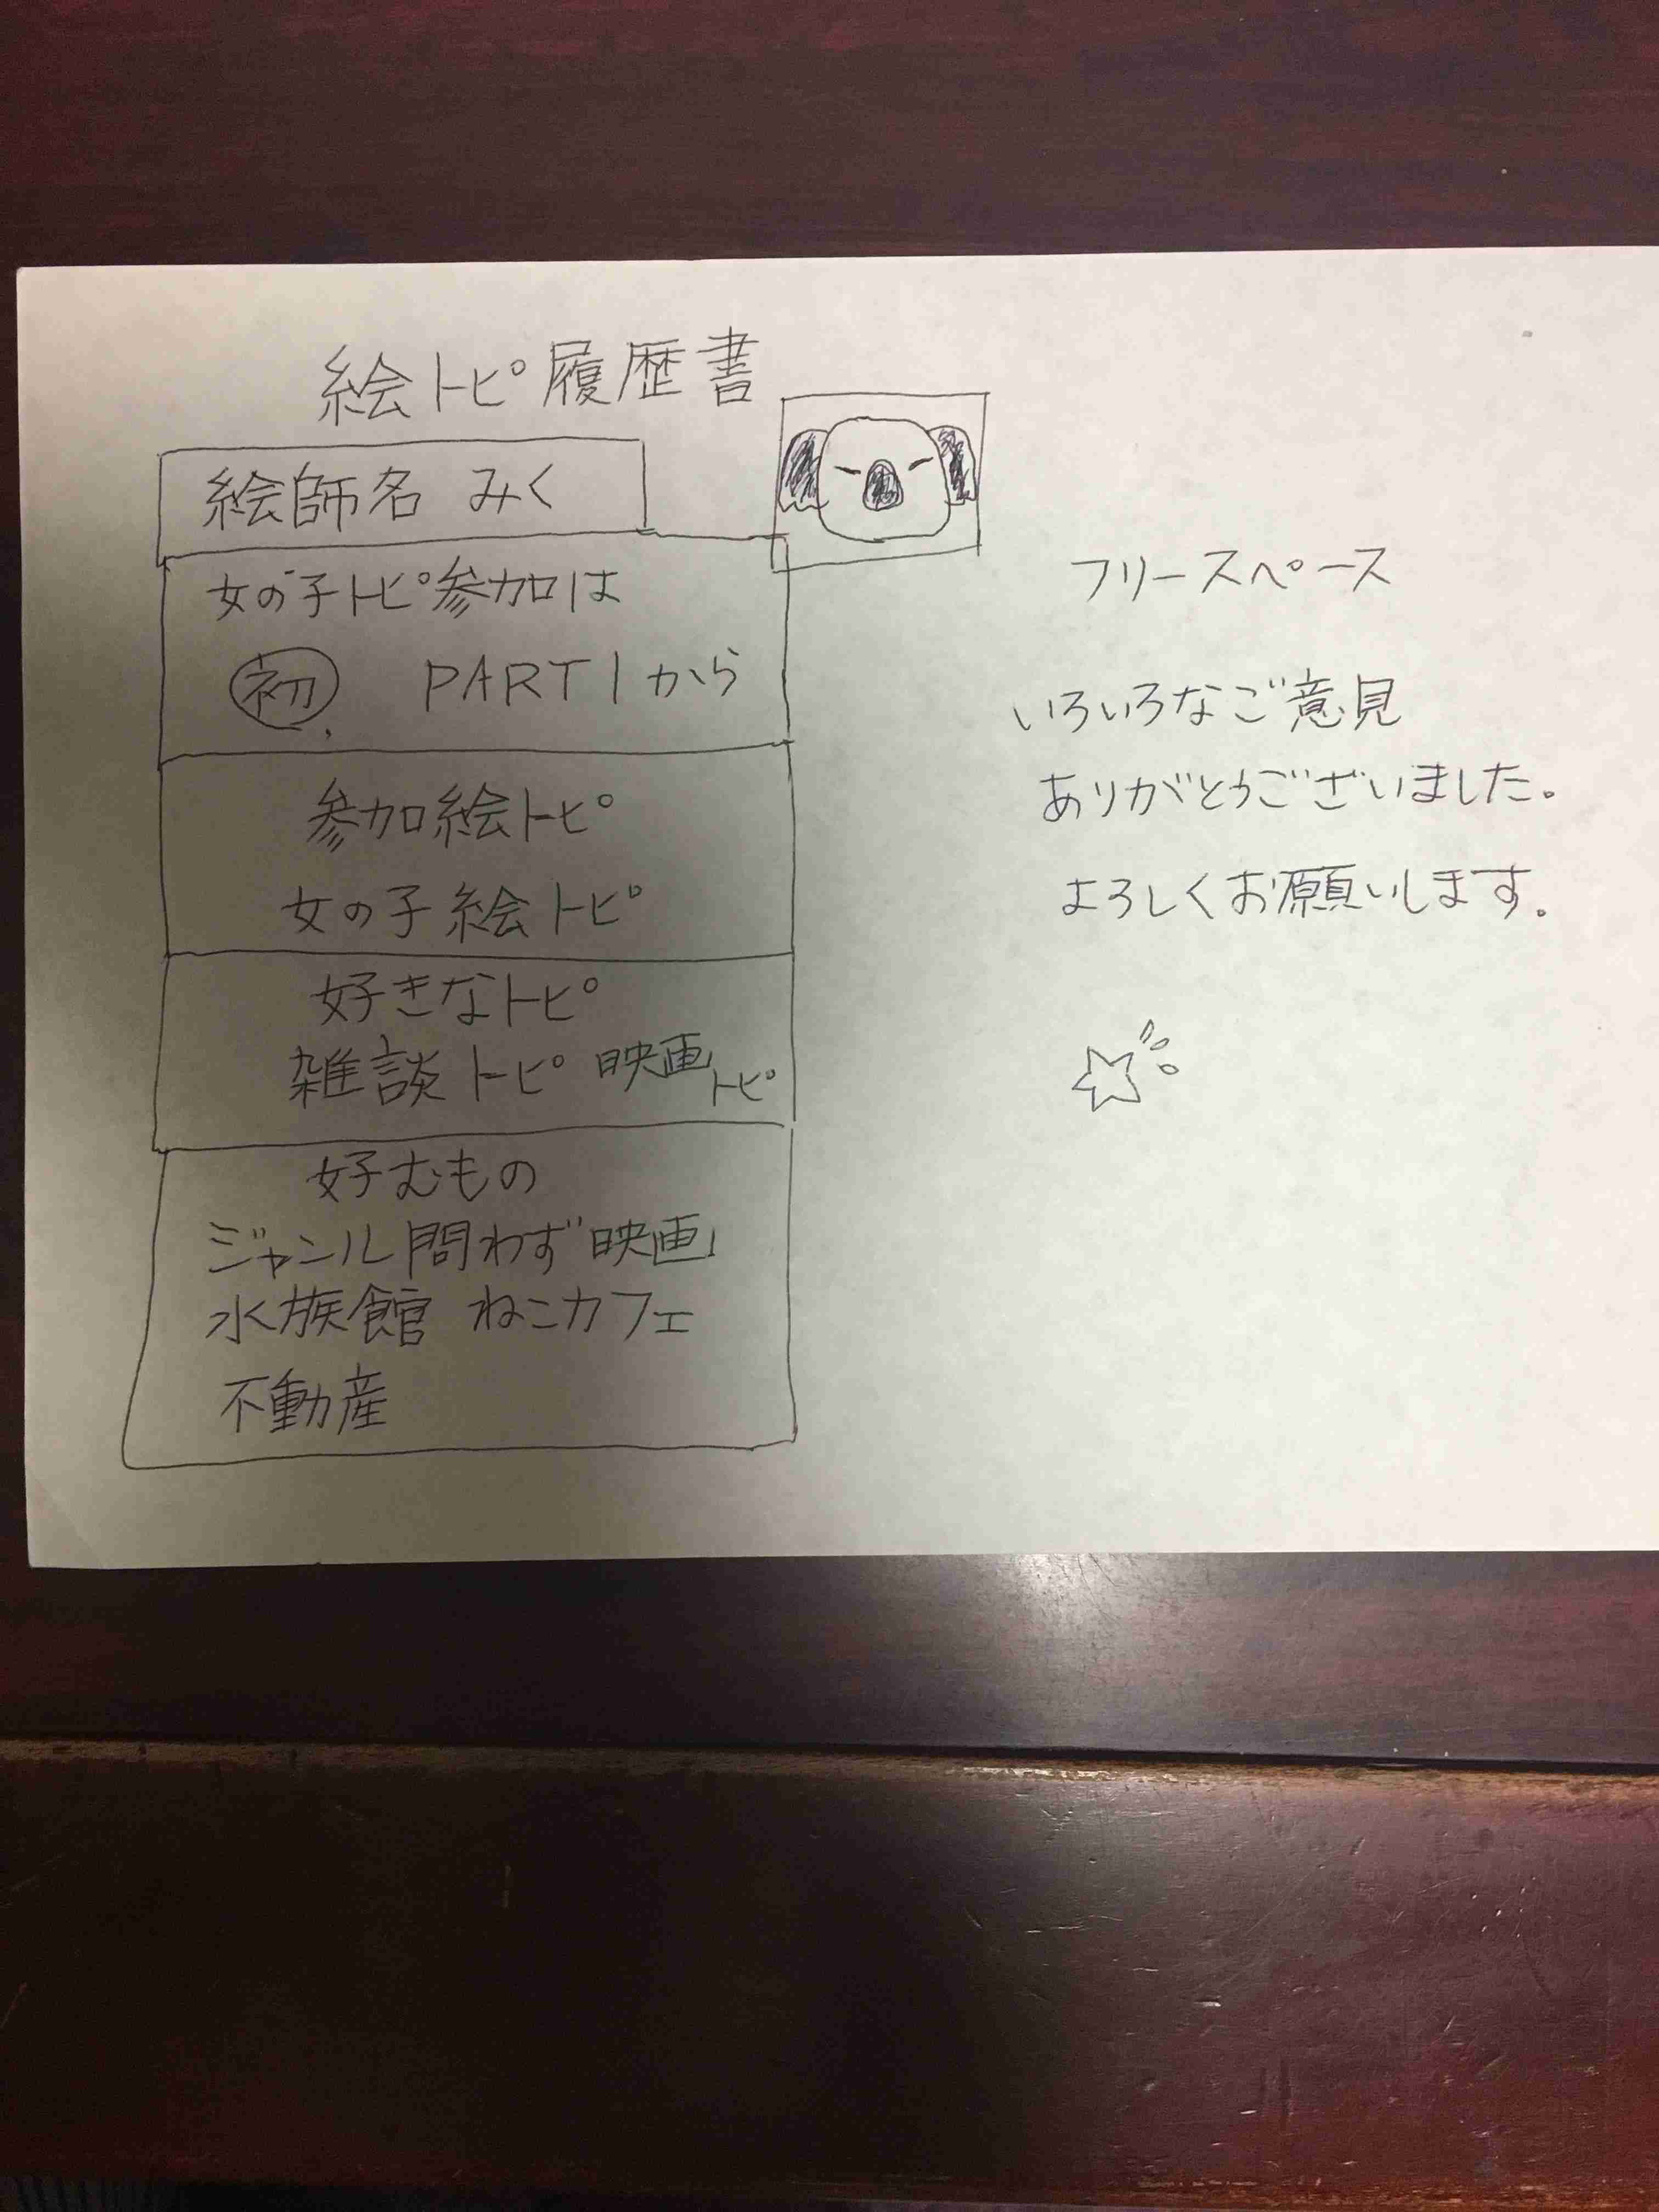 絵トピ履歴書
絵師名 みく
女の子トピ参加は
初 PART1から
参加絵トピ
女の子絵トピ
好きなトピ
雑談トピ 映画トピ
好むもの
ジャンル問わず映画
水族館 ねこカフェ
不動産
フリースペース
いろいろなご意見
ありがとうございました。
よろしくお願いします。